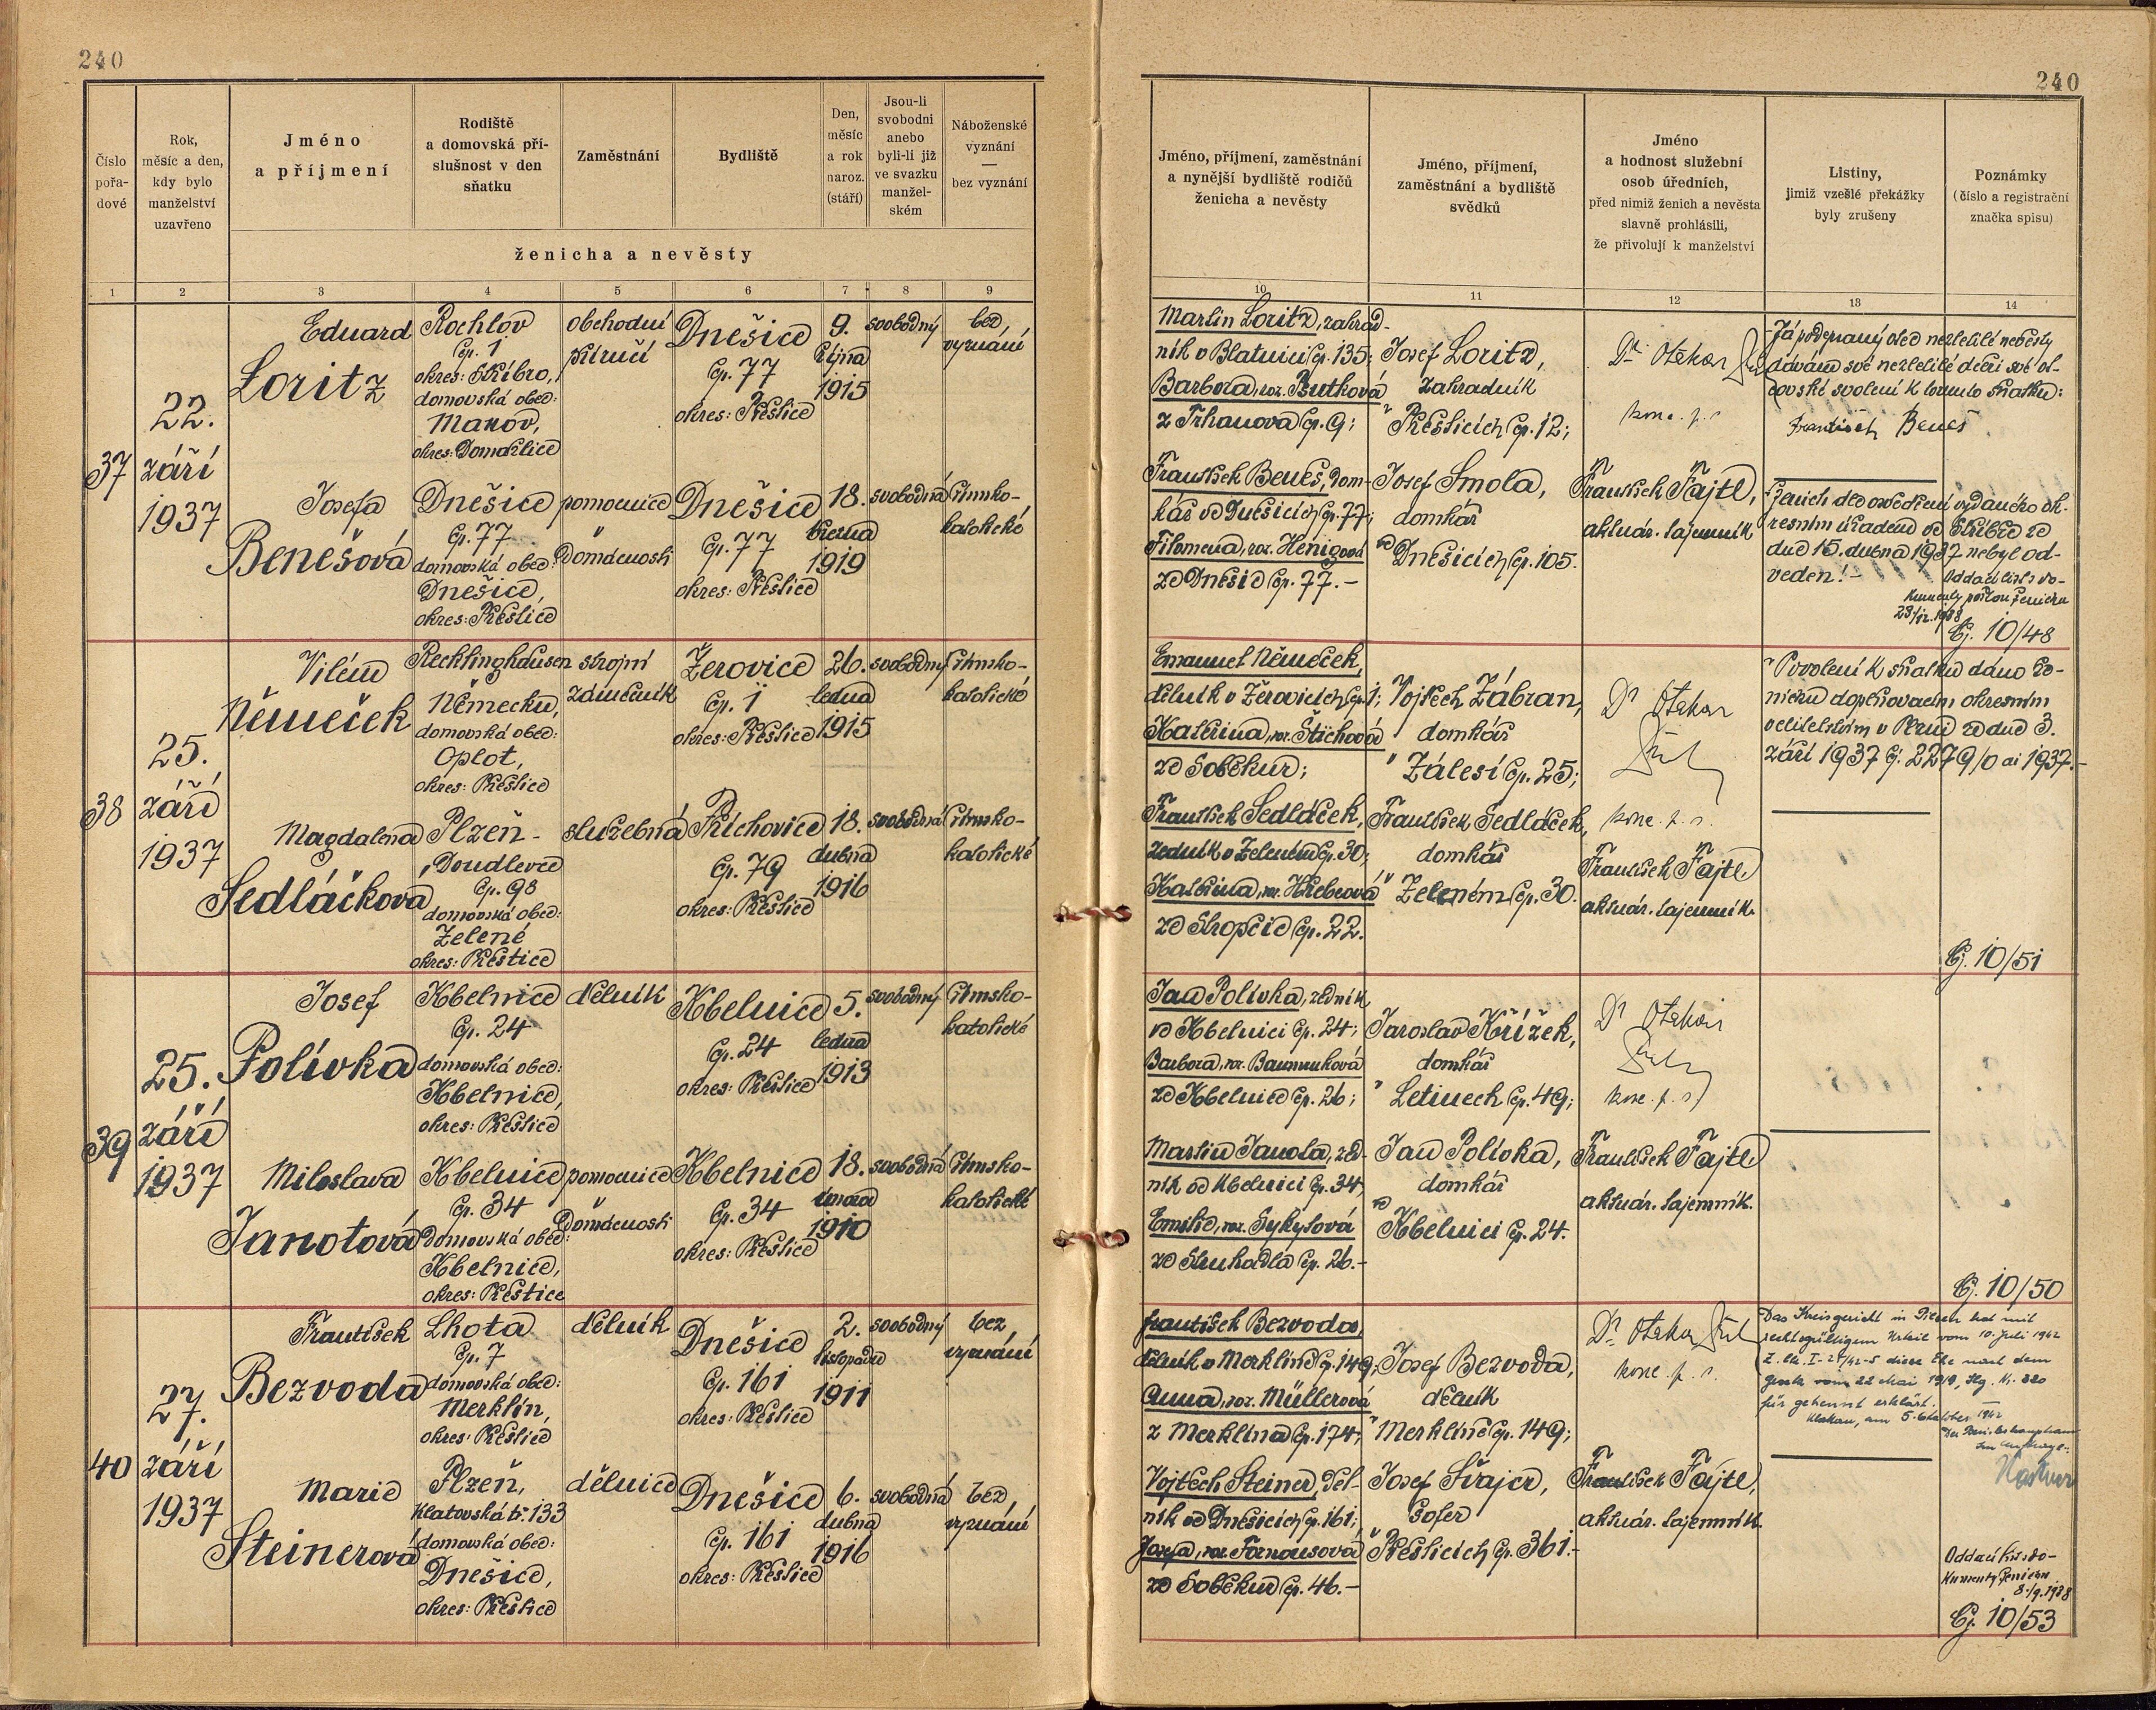 240
240
Číslo pořa-dové
Rok, měsíc a den, kdy bylo manželství uzavřeno
Jméno a příjmení
Rodiště a domovská pří-slušnost v den sňatku
Zaměstnání
Bydliště
Den, měsíc a rok naroz. (stáří)
Jsou-li svobodni anebo byli-li již ve svazku manžel-ském
Náboženské vyznání — bez vyznání
ženicha a nevěsty
Jméno, příjmení, zaměstnání a nynější bydliště rodičů ženicha a nevěsty
Jméno, příjmení, zaměstnání a bydliště svědků
Jméno a hodnost služební osob úředních, před nimiž ženich a nevěsta slavně prohlásili, že přivolují k manželství
Listiny, jimiž vzešlé překážky byly zrušeny
Poznámky (číslo a registrační značka spisu)
1 2 3 4 5 6 7 8 9 10 11 12 13 14
37
22.
září
1937
Eduard
Loritz
Rochlov
čp. 1
okres: Stříbro,
domovská obec:
Manov,
okres: Domažlice
obchodní
příručí
Dnešice
čp. 77
okres: Přeštice
9.
října
1915
svobodný
bez
vyznání
Josefa
Benešová
Dnešice
čp. 77
domovská obec:
Dnešice,
okres: Přeštice
pomocnice
v
domácnosti
Dnešice
čp. 77
okres: Přeštice
18.
března
1919
svobodná
římsko-
katolické
Martin Loritz, zahrad-
ník v Blatnici čp. 135;
Barbora, roz. Butková
z Trhanova čp. 9;
František Beneš, dom-
kář ve Dnešicích čp. 77;
Filomena, roz. Henigová
ze Dnešic čp. 77.-
Josef Loritz,
zahradník
v Přešticích čp. 12;
Josef Smola,
domkář
ve
Dnešicích čp. 105.
Dr Otakar
konc. p. s.
František Fajtl,
aktuár. tajemník
Já podepsaný otec nezletilé nevěsty
dávám své nezletilé dceři své ot-
covské svolení k tomuto sňatku:
František Beneš
Ženich dle osvědčení vydaného ok-
resním úřadem ve Stříbře ze
dne 15. dubna 1937 nebyl od-
veden! -
Oddací list s do-
kumenty
čj. 10/48
38
25.
září
1937
Vilém
Němeček
Recklinghausen
Německu,
domovská obec:
Oplot,
okres: Přeštice
strojní
zámečník
Žerovice
čp. 1
okres: Přeštice
26.
ledna
1915
svobodný
římsko-
katolické
Magdalena
Sedláčková
Plzeň -
Doudlevce
čp. 98
domovská obec:
Zelené
okres: Přeštice
služebná
Příchovice
čp. 79
okres: Přeštice
18.
dubna
1916
svobodná
římsko-
katolické
Emanuel Němeček,
dělník v Žerovicích čp. 1;
Kateřina, roz. Štichová
ze Soběkur;
František Sedláček,
zedník v Zeleném čp. 30;
Kateřina, roz.
ze Stropčic čp. 22.
Vojtěch Zábran,
domkář
v Zálesí čp. 25;
František Sedláček,
domkář
v Zeleném čp. 30.
Dr Otakar
konc. p. s.
František Fajtl
aktuár. tajemník
Povolení k sňatku dáno
doplňovacím okresním
velitelstvím v Plzni ze dne 3.
září 1937 čj. 2279/0 ai 1937.-
čj. 10/51
39
25.
září
1937
Josef
Polívka
Kbelnice
čp. 24
domovská obec:
Kbelnice,
okres: Přeštice
dělník
Kbelnice
čp. 24
okres: Přeštice
5.
ledna
1913
svobodný
římsko-
katolické
Miloslava
Janotová
Kbelnice
čp. 34
domovská obec:
Kbelnice,
okres: Přeštice
pomocnice
v
domácnosti
Kbelnice
čp. 34
okres: Přeštice
18.
února
1910
svobodná
římsko-
katolické
Jan Polívka, zedník
ve Kbelnici čp. 24;
Barbora, roz.
ze Kbelnice čp. 26;
Martin Janota, zed-
ník ve Kbelnici čp. 34;
Emilie, roz. Sykytová
ze Struhadla čp. 26.-
Jaroslav Křížek,
domkář
v Letinech čp. 49;
Jan Polívka,
domkář
ve
Kbelnici čp. 24.
Dr Otakar
konc. p. s.
František Fajtl
aktuár. tajemník.
čj. 10/50
40
27.
září
1937
František
Bezvoda
Lhota
čp. 7
domovská obec:
Merklín,
okres: Přeštice
dělník
Dnešice
čp. 161
okres: Přeštice
2.
listopadu
1911
svobodný
bez
vyznání
Marie
Steinerová
Plzeň,
Klatovská tř. 133
domovská obec:
Dnešice,
okres: Přeštice
dělnice
Dnešice
čp. 161
okres: Přeštice
6.
dubna
1916
svobodná
bez
vyznání
František Bezvoda,
dělník v Merklíně čp. 149;
Anna, roz. Müllerová
z Merklína čp. 174;
Vojtěch Steiner, děl-
ník ve Dnešicích čp. 161;
Josefa, roz.
ze Soběkur čp. 46.-
Josef Bezvoda,
dělník
v Merklíně čp. 149;
Josef Švajcr,
šofer
v Přešticích čp. 361.-
Dr Otakar
konc. p. s.
František Fajtl,
aktuár. tajemník.
Das Kreisgericht in Pilsen hat mit
rechtsgültigem Urteil vom 10. Juli 1942
diese Ehe nach dem
Gesetz vom 22 Mai 1919, Slg. N. 320
für getrennt erklärt.
Klattau, am 5. Oktober 1942
Oddací list s do-
kumenty ženicha
čj. 10/53